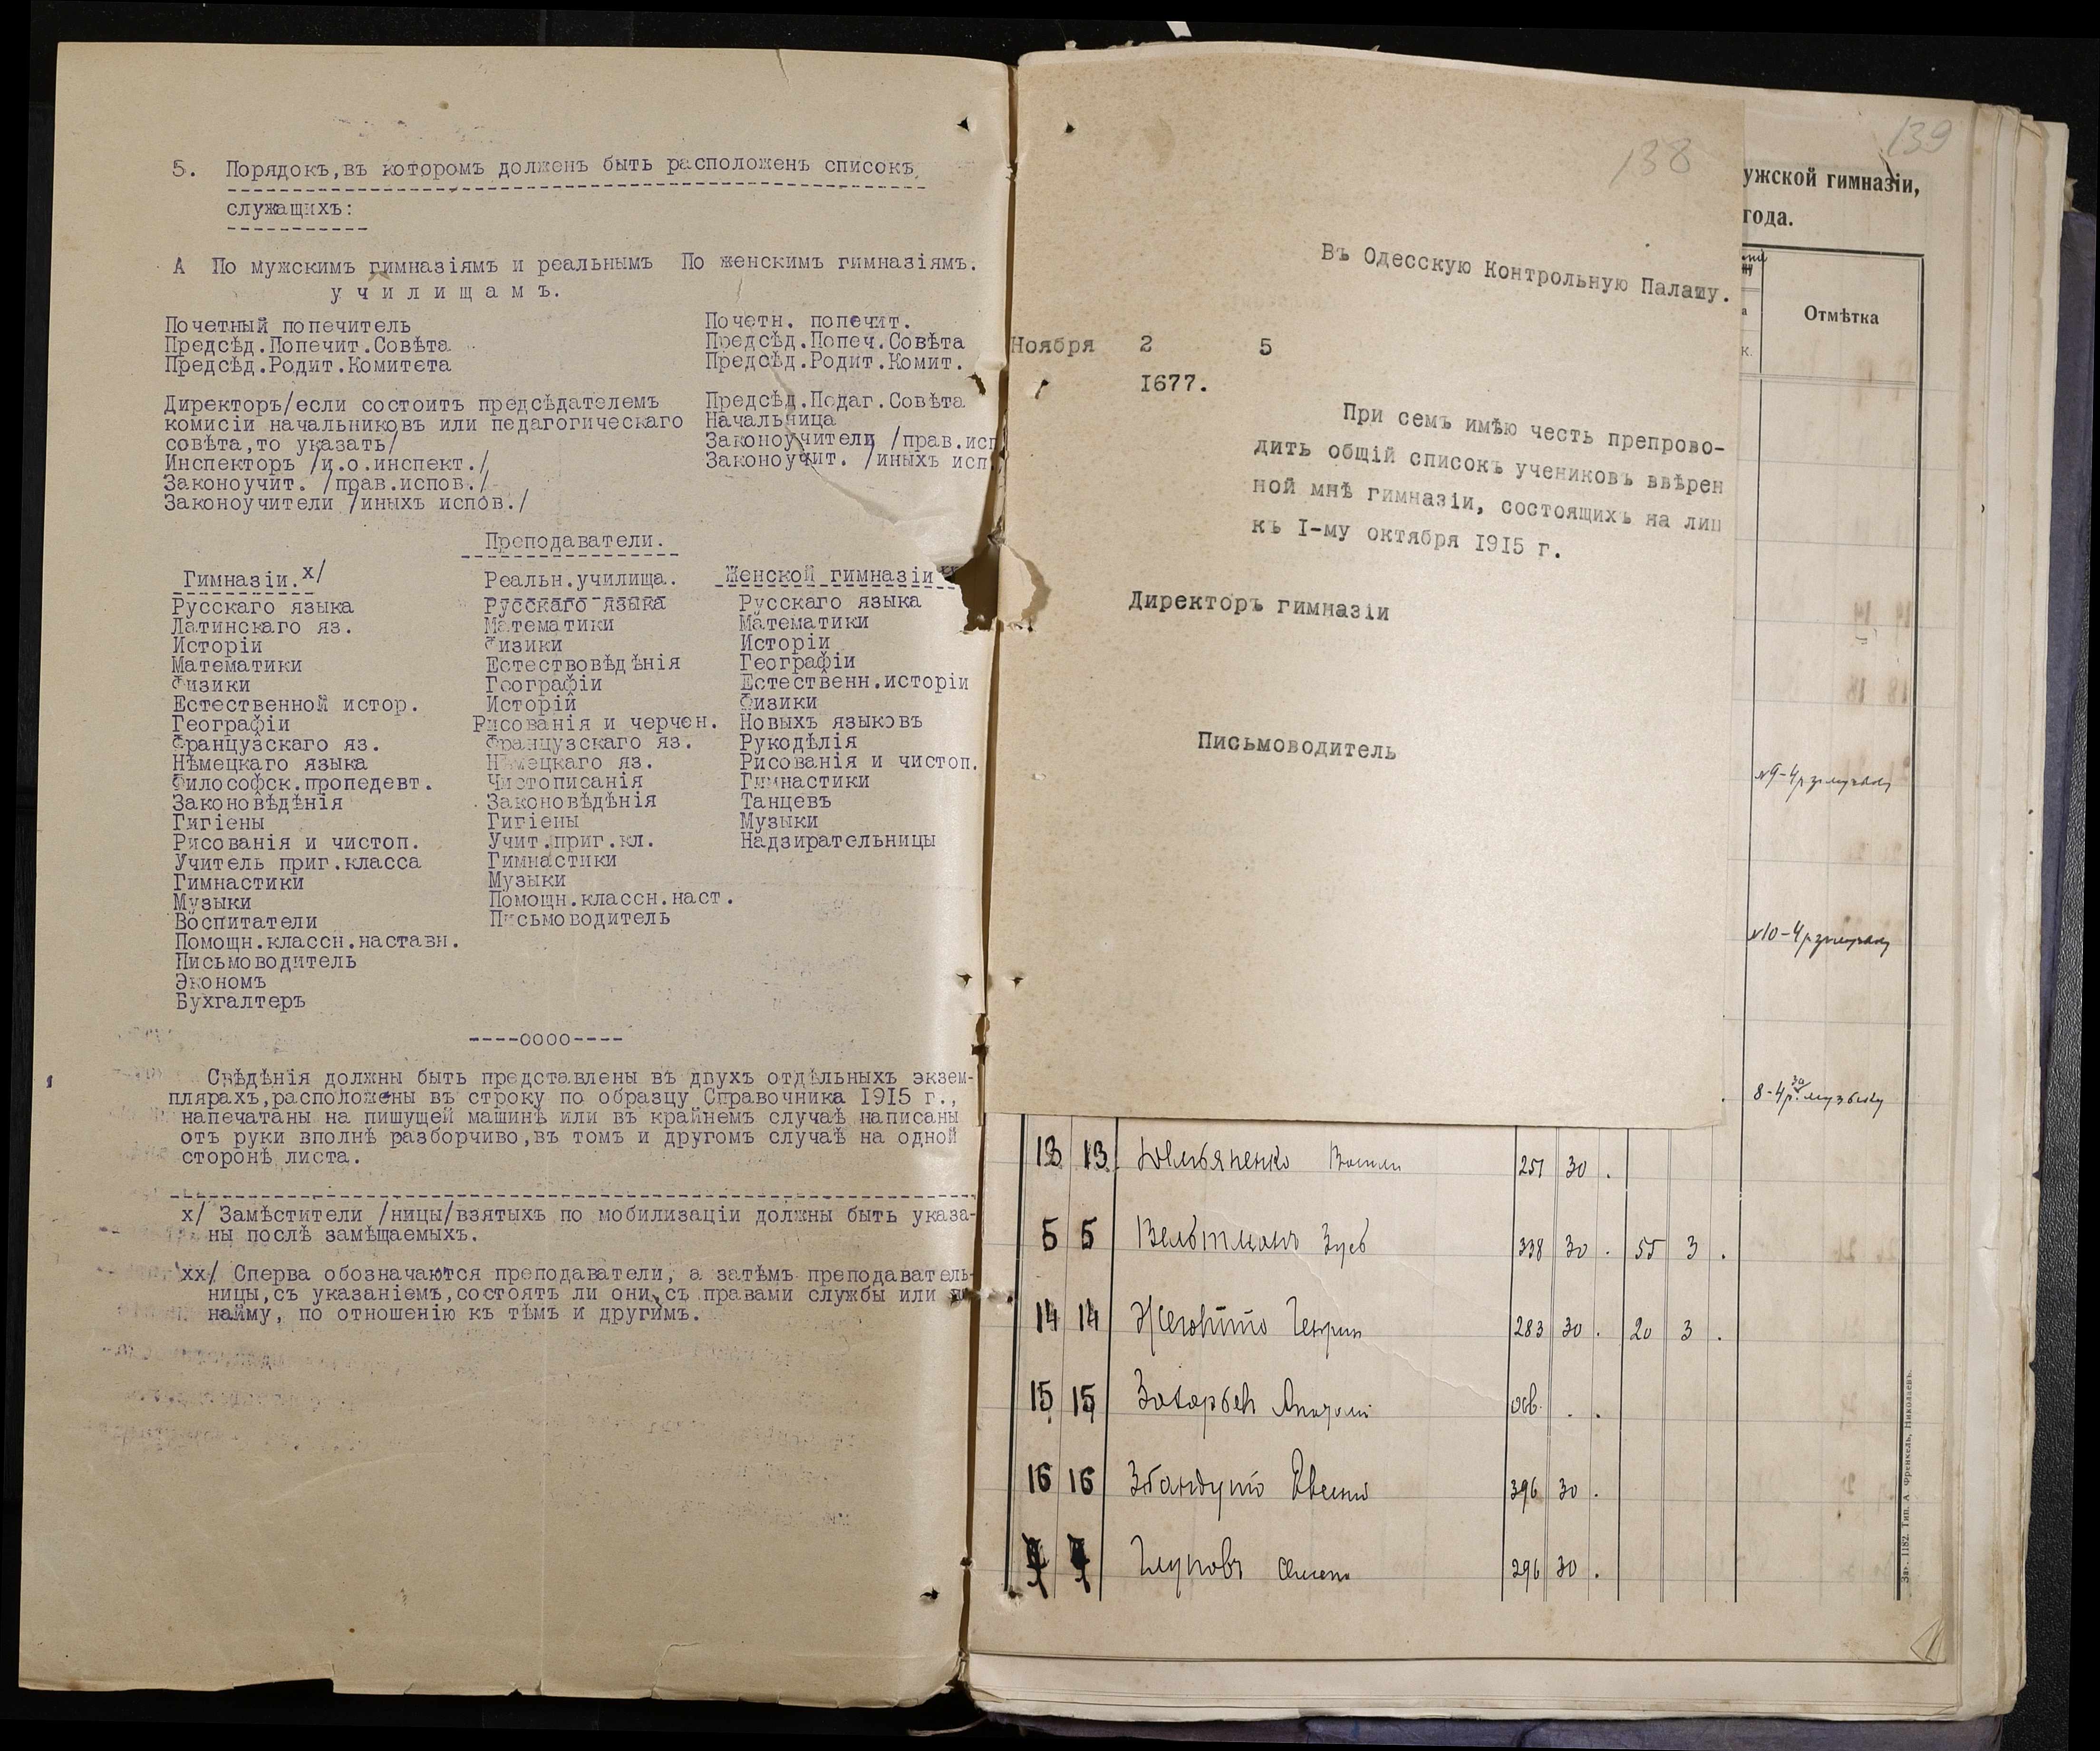 5. Порядокъ,въ которомъ долженъ быть расположенъ списокъ
служащихъ:
А По мужскимъ гимназіямъ и реальнымъ По женскимъ гимназіямъ.
у ч и л и щ а м ъ.
Почетный попечитель
Предсѣд.Попечит.Совѣта
Предсѣд.Родит.Комитета
Почетн. попечит.
Предсѣд.Попеч.Совѣта
Предсѣд.Родит.Комит.
Директоръ/если состоитъ предсѣдателемъ
комисіи начальниковъ или педагогическаго
совѣта,то указать/
Инспекторъ /и.о.инспект./
Законоучит. /прав.испов./
Законоучители /иныхъ испов./
Предсѣд.Педаг.Совѣта
Начальница
Законоучители /прав.исп
Законоучит. /иныхъ исп
Преподаватели.
Гимназіи.х/
Русскаго языка
Латинскаго яз.
Исторіи
Математики
Физики
Естественной истор.
Географіи
Французскаго яз.
Нѣмецкаго языка
Философск.пропедевт.
Законовѣдѣнія
Гигіены
Рисованія и чистоп.
Учитель приг.класса
Гимнастики
Музыки
Воспитатели
Помощн.классн.наставн.
Письмоводитель
Экономъ
Бухгалтеръ
Реальн.училища.
Русскаго языка
Математики
Физики
Естествовѣдѣнія
Географіи
Исторіи
Рисованія и черчен.
Французскаго яз.
Нѣмецкаго яз.
Чистописанія
Законовѣдѣнія
Гигіены
Учит.приг.кл.
Гимнастики
Музыки
Помощн.классн.наст.
Письмоводитель
Женской гимназіи
Русскаго языка
Математики
Исторіи
Географіи
Естественн.исторіи
Физики
Новыхъ языковъ
Рукодѣлія
Рисованія и чистоп.
Гимнастики
Танцевъ
Музыки
Надзирательницы
----оооо----
Свѣдѣнія должны быть представлены въ двухъ отдѣльныхъ экзем-
плярахъ,расположены въ строку по образцу Справочника 1915 г.,
напечатаны на пишущей машинѣ или въ крайнемъ случаѣ написаны
отъ руки вполнѣ разборчиво,въ томъ и другомъ случаѣ на одной
сторонѣ листа.
х/ Замѣстители /ницы/взятыхъ по мобилизаціи должны быть указа-
ны послѣ замѣщаемыхъ.
хх/ Сперва обозначаются преподаватели, а затѣмъ преподаватель-
ницы,съ указаніемъ,состоятъ ли они съ правами службы или
найму, по отношенію къ тѣмъ и другимъ.
138
Въ Одесскую Контрольную Палату.
Ноября 2 5
1677.
При семъ имѣю честь препрово-
дить общій списокъ учениковъ ввѣрен
ной мнѣ гимназіи, состоящихъ на лиц
къ I-му октября 1915 г.
Директоръ гимназіи
Письмоводитель
139
ужской гимназіи,
года.
Отмѣтка
к.
8-4р. за музыку
13 13 251 30 .
5 5 Вельтманъ 338 30 . 55 3 .
14 14 283 30 . 20 3 .
15 15 осв. . .
16 16 396 30 .
296 30 .
Зак. 1182. Тип. А Френкель, Николаевъ.